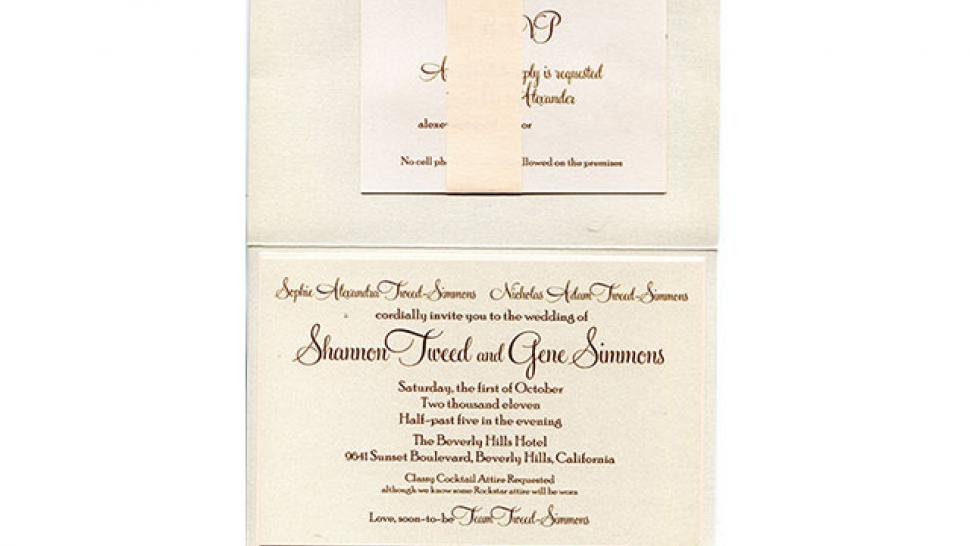 is requested
Alexander
No cell
on the premises
Sophie Alexandra Tweed-Simmons Nicholas Adam Tweed-Simmons
cordially invite you to the wedding of
Shannon Tweed and Gene Simmons
Saturday, the first of October
Two thousand eleven
Half-past five in the evening
The Beverly Hills Hotel
9641 Sunset Boulevard, Beverly Hills, California
Classy Cocktail Attire Requested
although we know some Rockstar attire will be worn
Love, soon-to-be Team Tweed-Simmons